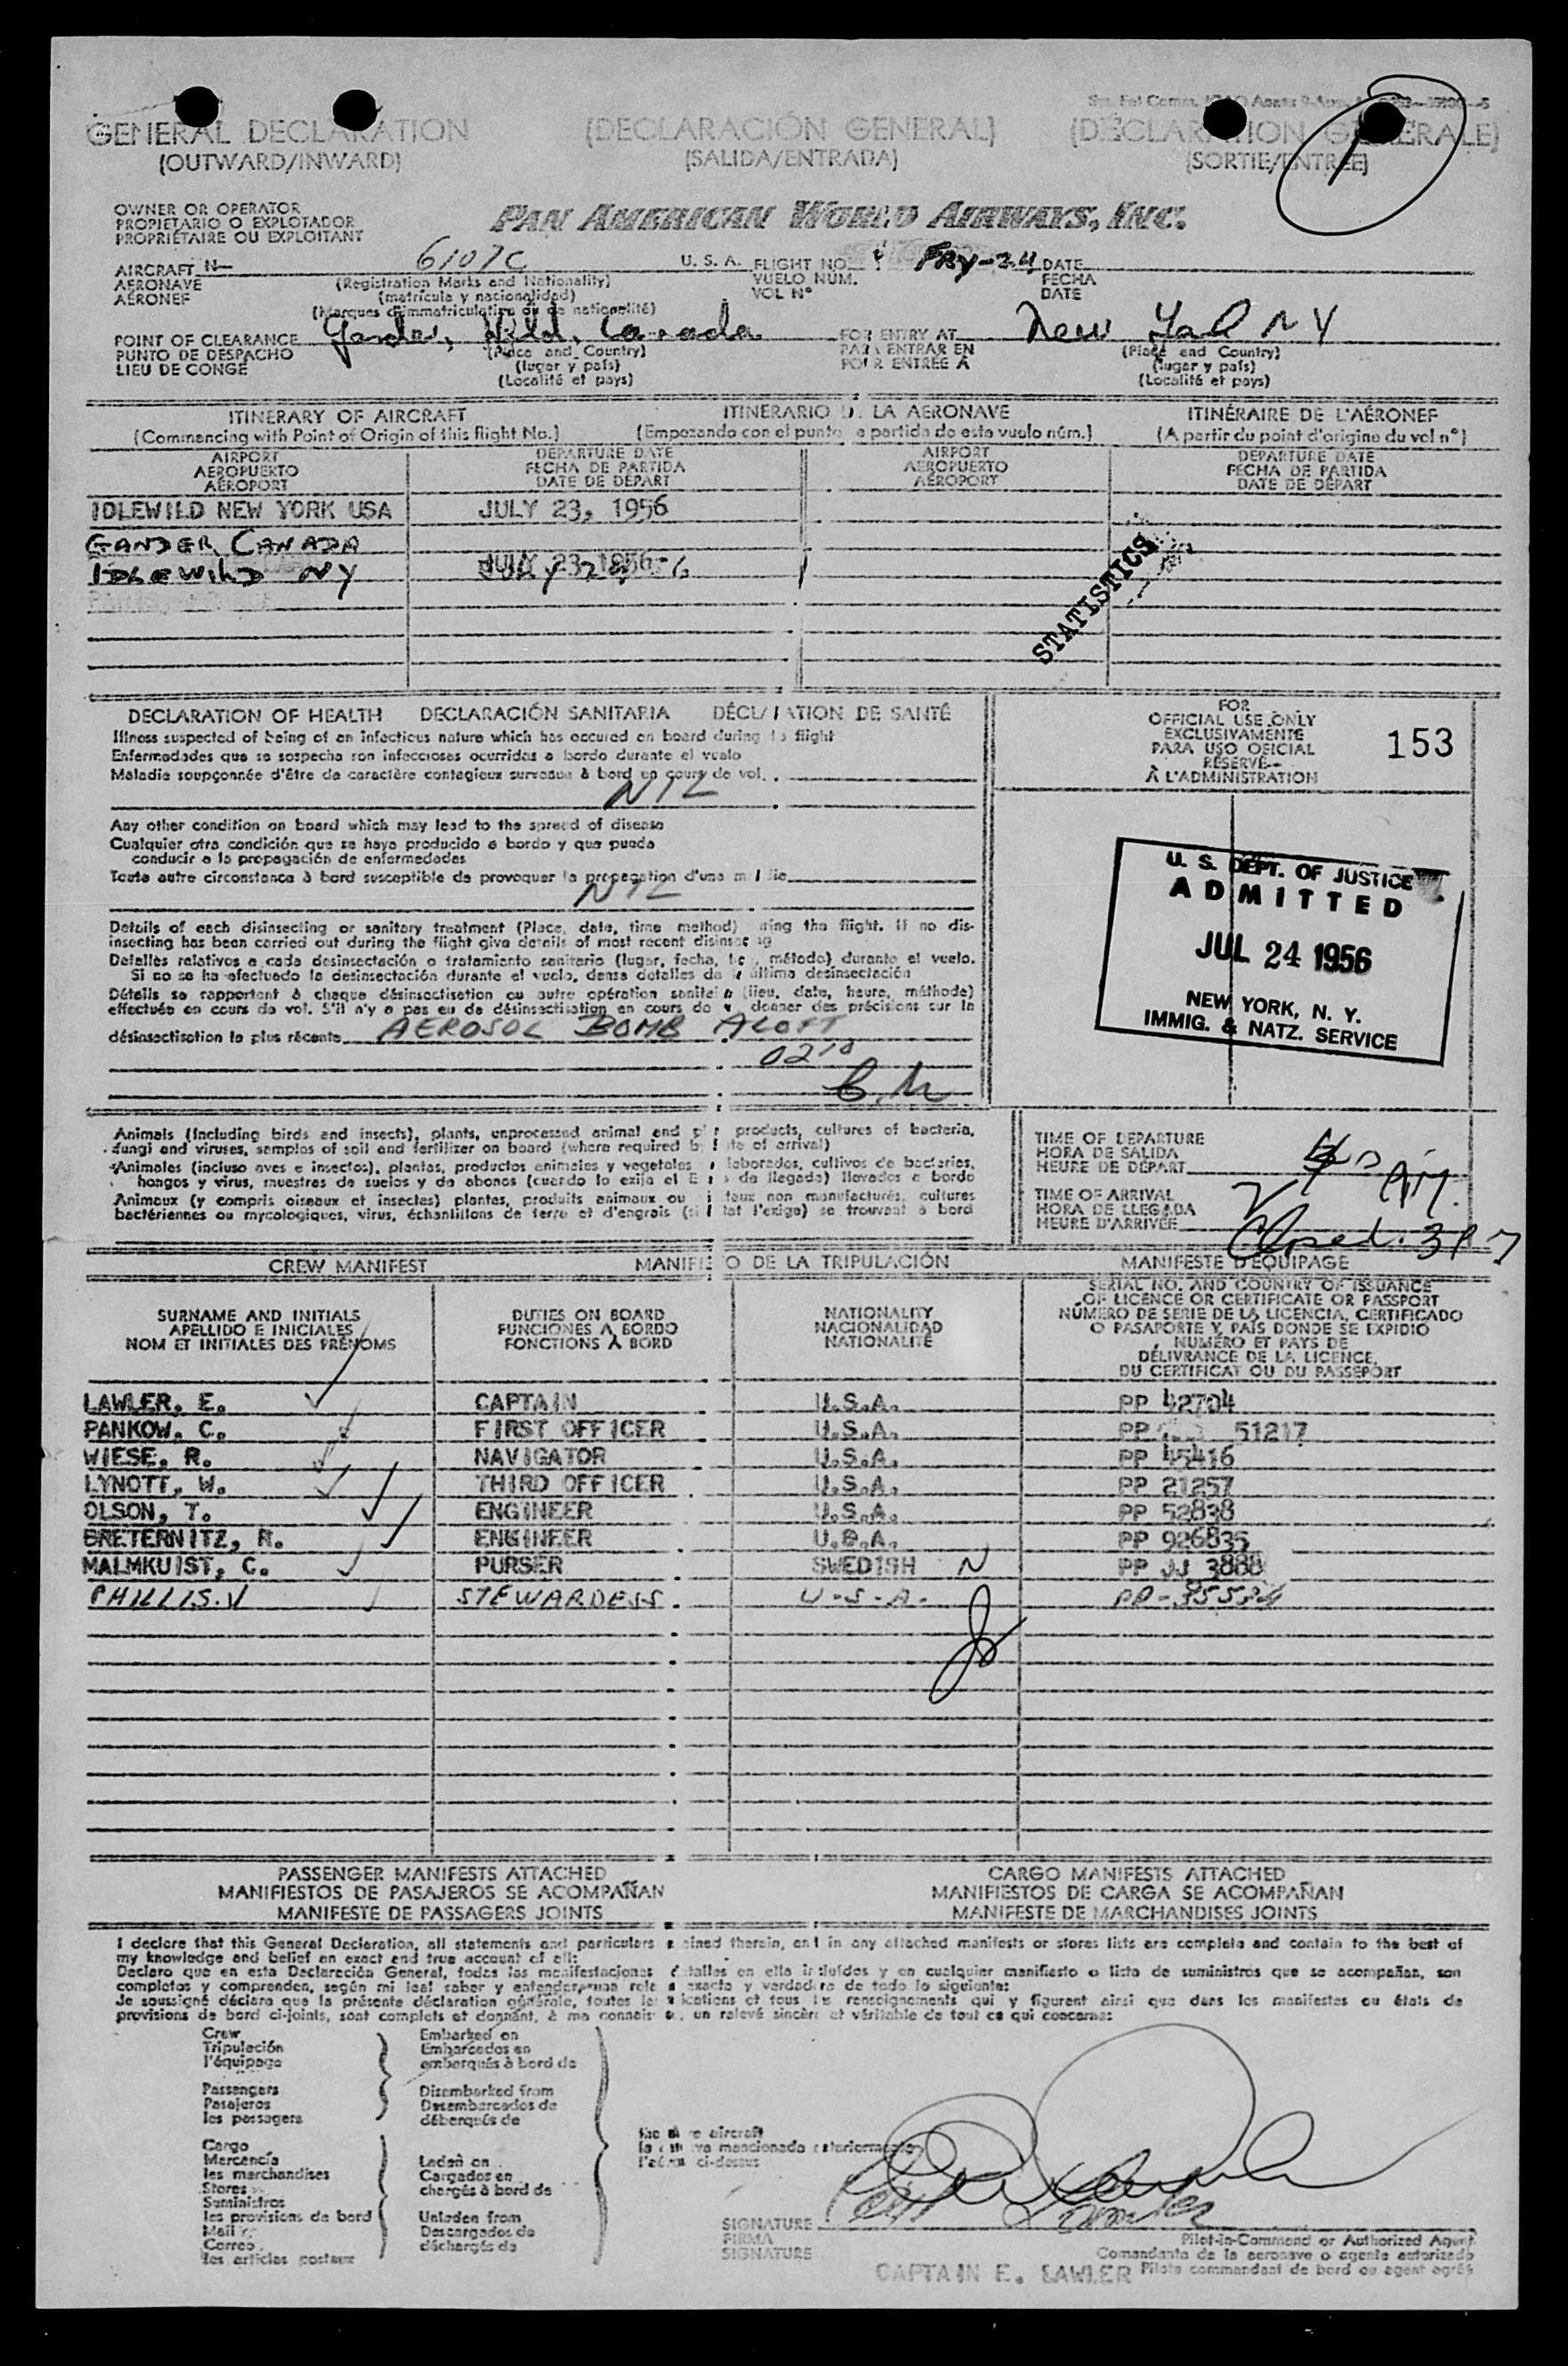 GENERAL DECLARATION (DECLARACIÓN GENERAL) (DÉCLARATION GÉNÉRALE)
(OUTWARD/INWARD) (SALIDA/ENTRADA) (SORTIE/ENTRÉE)
1
OWNER OR OPERATOR
PROPIETARIO O EXPLOTADOR
PROPRIÉTAIRE OU EXPLOITANT
PAN AMERICAN WORLD AIRWAYS, INC.
AIRCRAFT N— 6107C U. S. A. FLIGHT NO. FRY-24 DATE
AERONAVE (Registration Marks and Nationality) VUELO NÚM. FECHA
AÉRONEF (matrícula y nacionalidad) VOL Nº DATE
(Marques d'immatriculation ou de nationalité)
POINT OF CLEARANCE Gander, Nfld, Canada FOR ENTRY AT New York NY
PUNTO DE DESPACHO (Place and Country) PARA ENTRAR EN (Place and Country)
LIEU DE CONGÉ (lugar y país) POUR ENTRÉE À (lugar y país)
(Localité et pays) (Localité et pays)
ITINERARY OF AIRCRAFT ITINERARIO DE LA AERONAVE ITINÉRAIRE DE L'AÉRONEF
(Commencing with Point of Origin of this flight No.) (Empezando con el punto de partida de este vuelo núm.) (A partir du point d'origine du vol nº)
AIRPORT DEPARTURE DATE AIRPORT DEPARTURE DATE
AEROPUERTO FECHA DE PARTIDA AEROPUERTO FECHA DE PARTIDA
AÉROPORT DATE DE DÉPART AÉROPORT DATE DE DÉPART
IDLEWILD NEW YORK USA JULY 23, 1956
GANDER CANADA
IDLEWILD NY
STATISTICS
DECLARATION OF HEALTH DECLARACIÓN SANITARIA DÉCLARATION DE SANTÉ
Illness suspected of being of an infectious nature which has occured on board during the flight
Enfermedades que se sospecha son infecciosas ocurridas a bordo durante el vuelo
Maladie soupçonnée d'être de caractère contagieux survenue à bord en cours de vol.
NIL
Any other condition on board which may lead to the spread of disease
Cualquier otra condición que se haya producido a bordo y que pueda
conducir a la propagación de enfermedades
Toute autre circonstance à bord susceptible de provoquer la propagation d'une maladie
NIL
Details of each disinsecting or sanitary treatment (Place, date, time method) during the flight. If no dis-
insecting has been carried out during the flight give details of most recent disinsecting
Detalles relativos a cada desinsectación o tratamiento sanitario (lugar, fecha, hora, método) durante el vuelo.
Si no se ha efectuado la desinsectación durante el vuelo, dense detalles de la última desinsectación
Détails se rapportant à chaque désinsectisation ou autre opération sanitaire (lieu, date, heure, méthode)
effectuée en cours de vol. S'il n'y a pas eu de désinsectisation en cours de vol donner des précisions sur la
désinsectisation la plus récente AEROSOL BOMB ALOFT
0210
FOR
OFFICIAL USE ONLY
EXCLUSIVAMENTE
PARA USO OFICIAL
RÉSERVÉ
À L'ADMINISTRATION
153
U. S. DEPT. OF JUSTICE
ADMITTED
JUL 24 1956
NEW YORK, N. Y.
IMMIG. & NATZ. SERVICE
Animals (Including birds and insects), plants, unprocessed animal and plant products, cultures of bacteria,
fungi and viruses, samples of soil and fertilizer on board (where required by State of arrival)
Animales (incluso aves e insectos), plantas, productos animales y vegetales no elaborados, cultivos de bacterias,
hongos y virus, muestras de suelos y de abonos (cuando lo exija el Estado de llegada) llevados a bordo
Animaux (y compris oiseaux et insectes) plantes, produits animaux ou végétaux non manufacturés, cultures
bactériennes ou mycologiques, virus, échantillons de terre et d'engrais (si l'Etat l'exige) se trouvant à bord
TIME OF DEPARTURE
HORA DE SALIDA
HEURE DE DÉPART
TIME OF ARRIVAL
HORA DE LLEGADA
HEURE D'ARRIVÉE
CREW MANIFEST MANIFIESTO DE LA TRIPULACIÓN MANIFESTE D'ÉQUIPAGE
SURNAME AND INITIALS DUTIES ON BOARD NATIONALITY SERIAL NO. AND COUNTRY OF ISSUANCE
APELLIDO E INICIALES FUNCIONES A BORDO NACIONALIDAD OF LICENCE OR CERTIFICATE OR PASSPORT
NOM ET INITIALES DES PRÉNOMS FONCTIONS À BORD NATIONALITÉ NÚMERO DE SERIE DE LA LICENCIA, CERTIFICADO
O PASAPORTE Y PAÍS DONDE SE EXPIDIÓ
NUMÉRO ET PAYS DE
DÉLIVRANCE DE LA LICENCE,
DU CERTIFICAT OU DU PASSEPORT
LAWLER, E. CAPTAIN U.S.A. PP 42704
PANKOW, C. FIRST OFFICER U.S.A. PP 51217
WIESE, R. NAVIGATOR U.S.A. PP 45416
LYNOTT, W. THIRD OFFICER U.S.A. PP 21257
OLSON, T. ENGINEER U.S.A. PP 52838
BRETERNITZ, R. ENGINEER U.S.A. PP 926835
MALMKUIST, C. PURSER SWEDISH N PP JJ 3888
PHILLIS. V STEWARDESS U.S.A. PP-35534
PASSENGER MANIFESTS ATTACHED CARGO MANIFESTS ATTACHED
MANIFIESTOS DE PASAJEROS SE ACOMPAÑAN MANIFIESTOS DE CARGA SE ACOMPAÑAN
MANIFESTE DE PASSAGERS JOINTS MANIFESTE DE MARCHANDISES JOINTS
I declare that this General Declaration, all statements and particulars contained therein, and in any attached manifests or stores lists are complete and contain to the best of
my knowledge and belief an exact and true account of all:
Declaro que en esta Declaración General, todas las manifestaciones y detalles en ella incluídos y en cualquier manifiesto o lista de suministros que se acompañan, son
completos y comprenden, según mi leal saber y entender, una relación exacta y verdadera de todo lo siguiente:
Je soussigné déclare que la présente déclaration générale, toutes les indications et tous les renseignements qui y figurent ainsi que dans les manifestes ou états de
provisions de bord ci-joints, sont complets et donnent, à ma connaissance, un relevé sincère et véritable de tout ce qui concerne:
Crew Embarked on
Tripulación Embarcados en
l'équipage embarqués à bord de
Passengers Disembarked from
Pasajeros Desembarcados de
les passagers débarqués de
Cargo
Mercancía Laden on
les marchandises Cargados en
Stores chargés à bord de
Suministros
les provisions de bord Unladen from
Mail Descargados de
Correo déchargés de
les articles postaux
the above aircraft
la aeronave mencionada anteriormente
l'aéronef ci-dessus
SIGNATURE
FIRMA
SIGNATURE
Pilot-in-Command or Authorized Agent
Comandante de la aeronave o agente autorizado
CAPTAIN E. LAWLER Pilote commandant de bord ou agent agréé